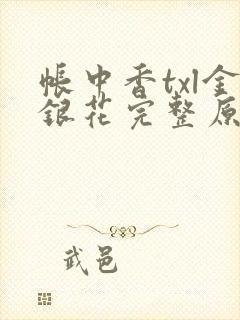 帐中香txl金
银花完整原
武邑